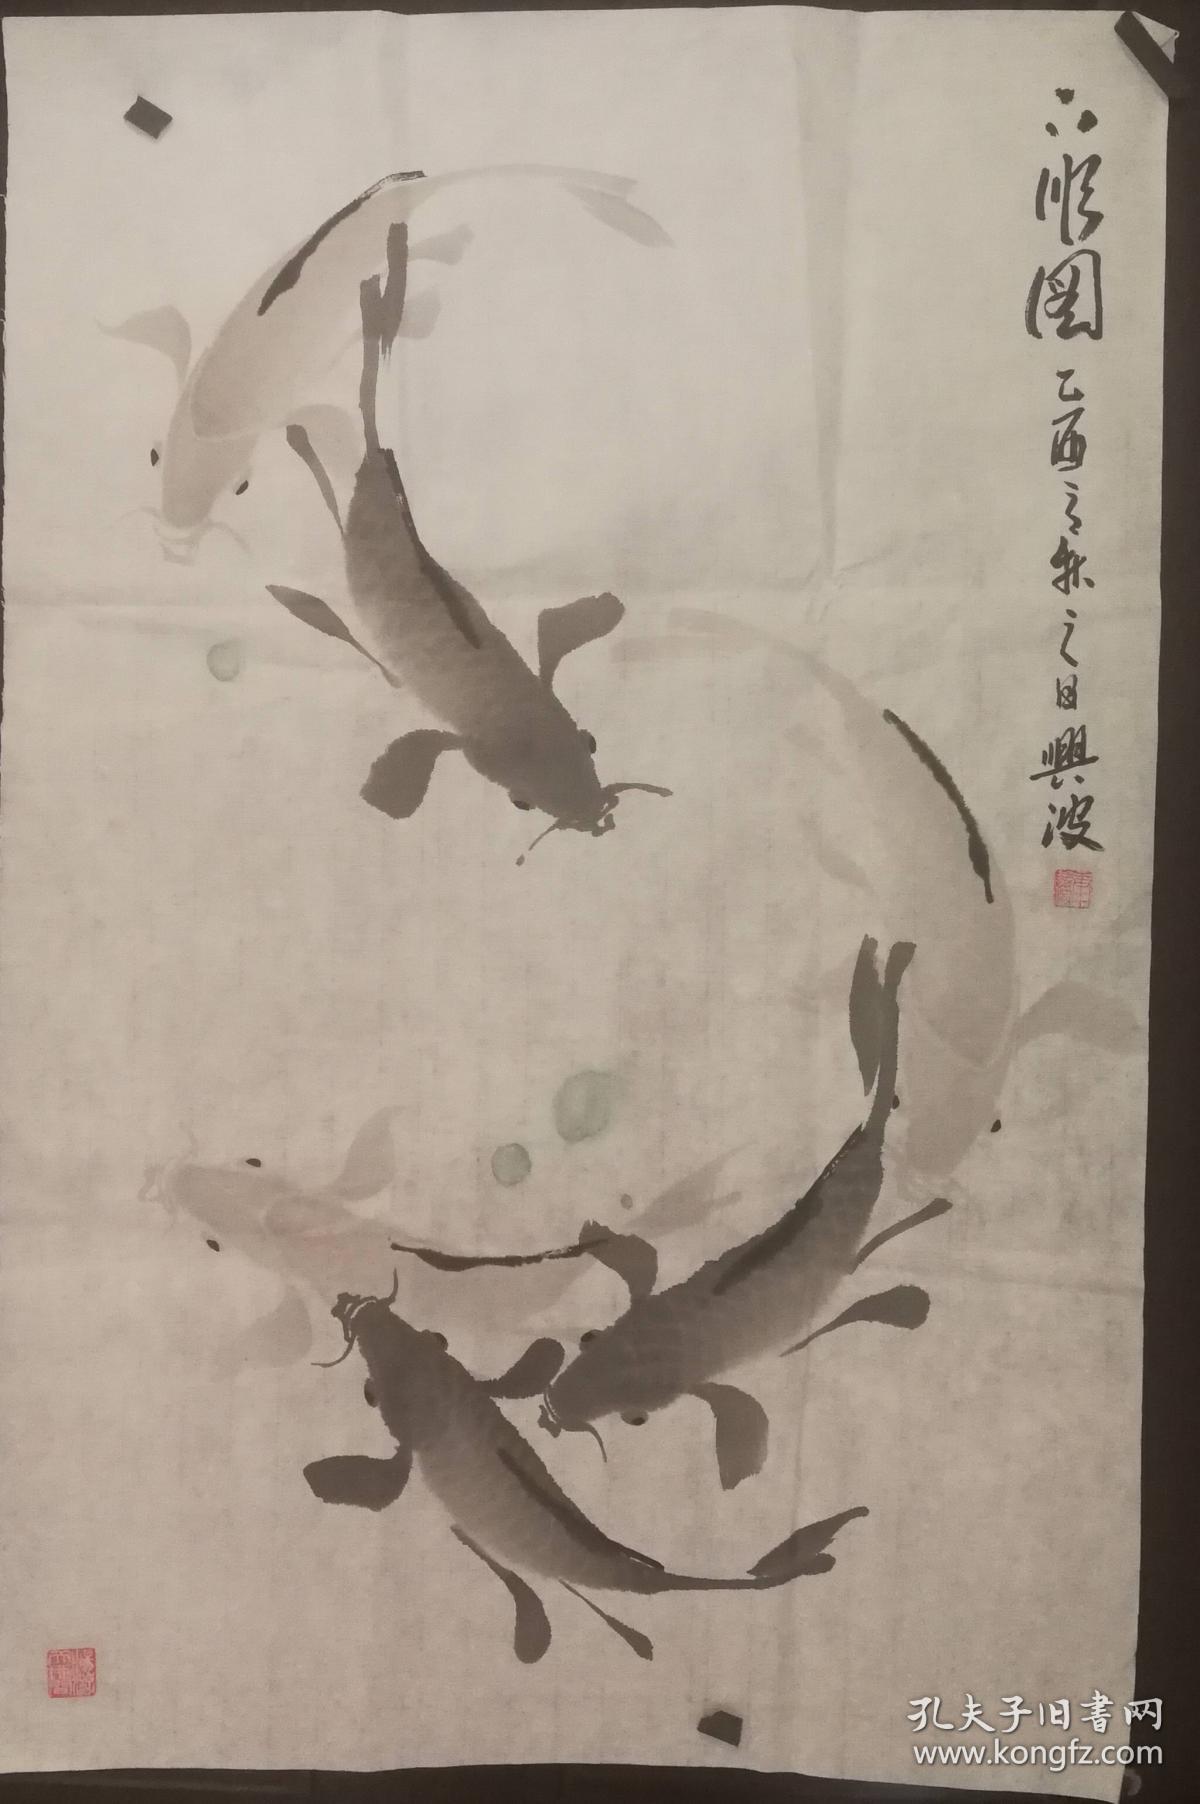 六顺图
乙酉立秋之日興波
孔夫子旧書网
www.kongfz.com